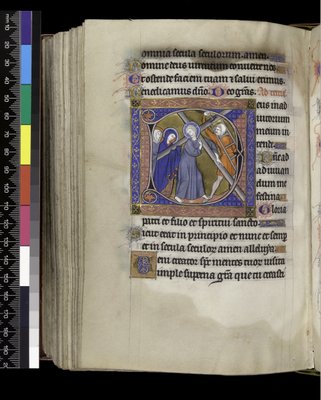 omnia secula seculorum. amen.
Domine deus virtutum converte nos
et ostende faciem tuam et salvi erimus.
Benedicamus dno. Deo gras.
eus in ad
iutorium
meum in
tende.
ne ad
ad iuuan
dum me
festina.
Gloria
patri et filio et spiritui sancto.
icut erat in principio et nunc et semp
et in secula seculor amen alleluya.
eni creator spc mentes tuor uisita
imple superna gra que tu creasti